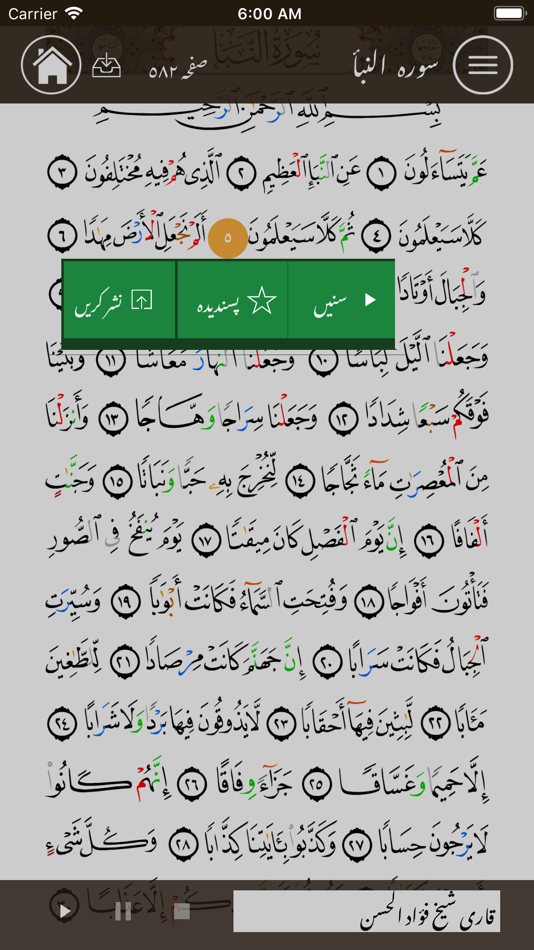 Carrier 6:00 AM
سورہ النبأ صفحہ ۵۸۲
سُورَةُ النَّبَإِ
بِسْمِ اللَّهِ الرَّحْمَٰنِ الرَّحِيمِ
عَمَّ يَتَسَاءَلُونَ ١ عَنِ النَّبَإِ الْعَظِيمِ ٢ الَّذِي هُمْ فِيهِ مُخْتَلِفُونَ ٣
كَلَّا سَيَعْلَمُونَ ٤ ثُمَّ كَلَّا سَيَعْلَمُونَ ٥ أَلَمْ نَجْعَلِ الْأَرْضَ مِهَٰدًا ٦
وَالْجِبَالَ أَوْتَادًا
سنیں
پسندیدہ
نشر کریں
وَجَعَلْنَا اللَّيْلَ لِبَاسًا ١٠ وَجَعَلْنَا النَّهَارَ مَعَاشًا ١١ وَبَنَيْنَا
فَوْقَكُمْ سَبْعًا شِدَادًا ١٢ وَجَعَلْنَا سِرَاجًا وَهَّاجًا ١٣ وَأَنزَلْنَا
مِنَ الْمُعْصِرَٰتِ مَاءً ثَجَّاجًا ١٤ لِّنُخْرِجَ بِهِ حَبًّا وَنَبَاتًا ١٥ وَجَنَّٰتٍ
أَلْفَافًا ١٦ إِنَّ يَوْمَ الْفَصْلِ كَانَ مِيقَٰتًا ١٧ يَوْمَ يُنفَخُ فِي الصُّورِ
فَتَأْتُونَ أَفْوَاجًا ١٨ وَفُتِحَتِ السَّمَاءُ فَكَانَتْ أَبْوَٰبًا ١٩ وَسُيِّرَتِ
الْجِبَالُ فَكَانَتْ سَرَابًا ٢٠ إِنَّ جَهَنَّمَ كَانَتْ مِرْصَادًا ٢١ لِّلطَّٰغِينَ
مَـَٔابًا ٢٢ لَّٰبِثِينَ فِيهَا أَحْقَابًا ٢٣ لَّا يَذُوقُونَ فِيهَا بَرْدًا وَلَا شَرَابًا ٢٤
إِلَّا حَمِيمًا وَغَسَّاقًا ٢٥ جَزَاءً وِفَاقًا ٢٦ إِنَّهُمْ كَانُوا
لَا يَرْجُونَ حِسَابًا ٢٧ وَكَذَّبُوا بِـَٔايَٰتِنَا كِذَّابًا ٢٨ وَكُلَّ شَيْءٍ
إِلَّا عَذَابًا ٣٠
قاری شیخ فؤاد الحسن